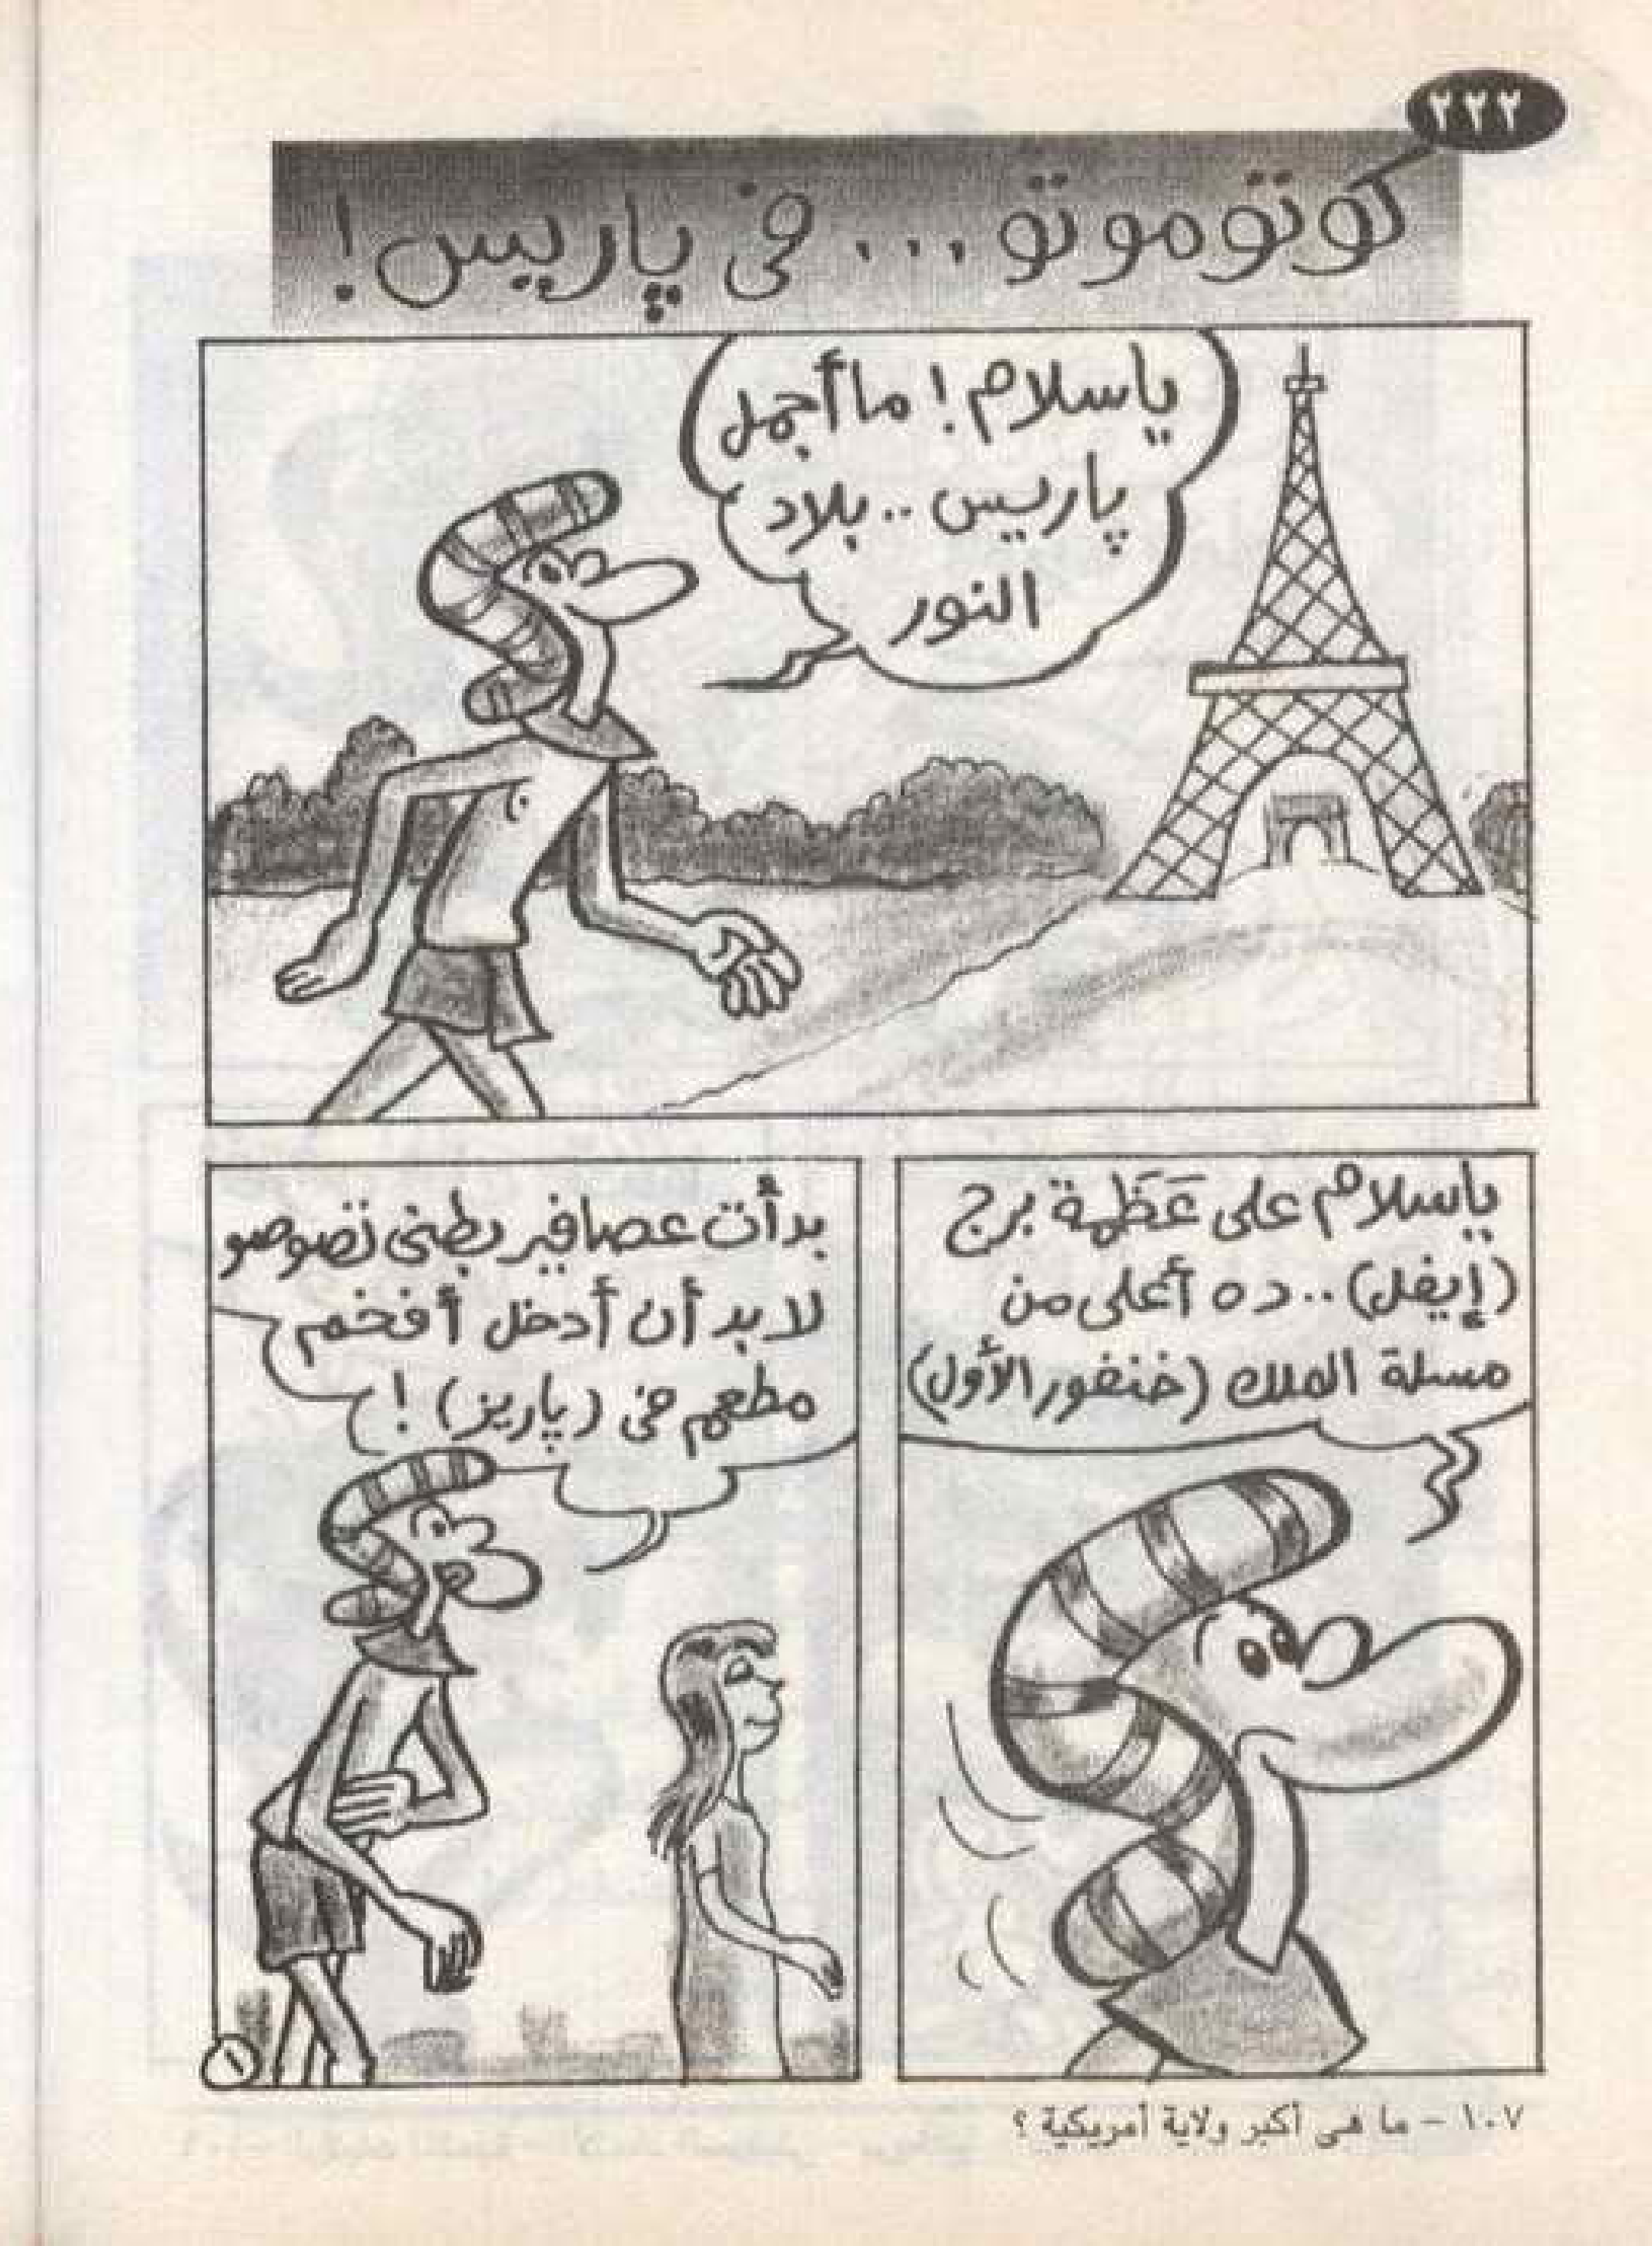 ٢٢٢
كوتوموتو ... فى پاريس !
ياسلام ! ما أجمل
پاريس .. بلاد
النور
ياسلام على عَظَمة برج
(إيفل) .. ده أعلى من
مسلة الملك (خنفور الأول)
بدأت عصافير بطنى تصوصو
لا بد أن أدخل أفخم
مطعم فى (پاريز) !
١
١٠٧ - ما هى أكبر ولاية أمريكية ؟